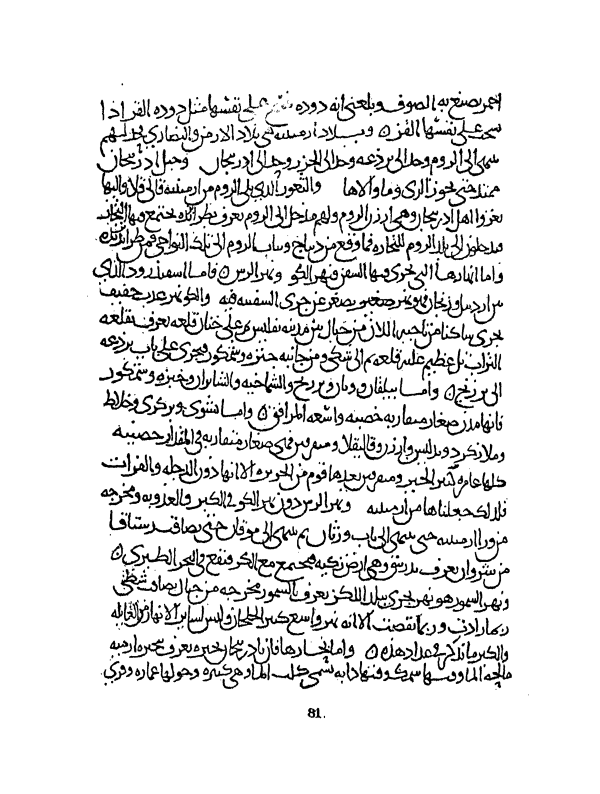 احمر يصنع به الصوف وبلغنى انه دوده تنسج على نفسها مثل دوده القز اذا
نسج على نفسها القز ٥ وبلاد ارمينيه هى بلاد الارمن والنصارى
الى الروم وحد الى برذعه وحد الى الجزيره وحد الى اذربيجان وجبل اذربيجان
ممتد حتى يجوز الرى وما والاها والثغور الذى يلى الروم من ارمينيه قالى قلا واليها
يغزوا اهل اذربيجان وهى ارزن الروم ولهم مدخل الى الروم يعرف بطرابزنده يجتمع فيها التجار
فيدخلون الى بلد الروم للتجاره فما وقع من ديباج وثياب الروم الى تلك النواحى فمن طرابزنده
واما انهارها التى تجرى فيها السفن فنهر الكر ونهر الرس ٥ فاما اسفيذرود الذى
بين اردبيل وزنجان فهو نهر صغير يصغر عن جرى السفينه فيه والكر نهر عذب خفيف
يجرى ساكنا من ناحيه اللان من جبال بين مدينه تفليس ثم على خنان قلعه يعرف بقلعه
التراب تل عظيم عليه قلعه ثم الى شكى ومن جانبه جنزه وشمكور فيجرى على باب برذعه
الى برزنج ٥ واما بيلقان وورثان وبرزنج والشماخيه والشابران وجنزه وشمكور
فانها مدن صغار متقاربه خصبه واسعه المرافق ٥ واما نشوى وبركرى وخلاط
وملازكرد وبدليس وارزن وقاليقلا وميافارقين فهى صغار متقاربه فى المقدار خصيبه
كلها عامره كثير الخير وميافارقين يعدها قوم من الجزيره الا انها دون الدجله والفرات
فلذلك جعلناها من ارمينيه ونهر الرس دون نهر الكر فى الكبر والعذوبه ومخرجه
من ورا ارمينيه حتى ينتهى الى باب ورثان ثم ينتهى الى موقان حتى يصاقب رستاقا
من شروان يعرف وهى ارض زكيه فيجتمع مع الكر فتقع فى البحر الطبرى ٥
ونهر السمور هو نهر يجرى ببلد اللكز يعرف بالسمور مخرجه من جبال
ربما زادت وربما نقصت الا انه نهر واسع كثير الخلجان وليس لساير الانهار من الغايله
والكبر ما نذكر فى عداد هذه ٥ واما بحارها فان باذربيجان بحيره يعرف ببحيره ارميه
مالحه الما وفيها سمك وفيها دابه تسمى كلب الما وهى كبيره وحولها عماره وقرى
81.